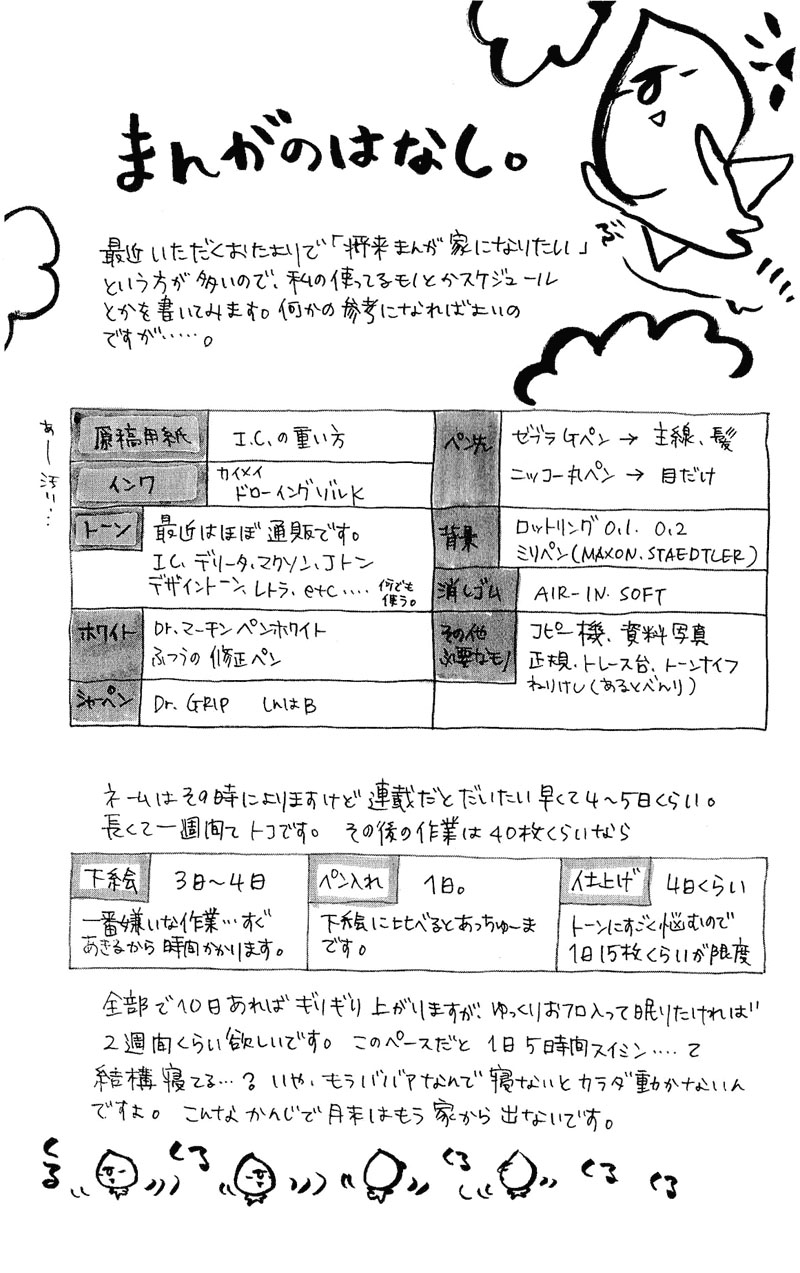 まんがのはなし。
ぶ
最近いただくおたよりで「将来まんが家になりたい」
という方が多いので、私の使ってるモノとかスケジュール
とかを書いてみます。何かの参考になればよいの
ですが……。
あー汚い…
原稿用紙
I.C.の重い方
インク
カイメイ
ドローイングゾルK
トーン
最近はほぼ通販です。
I.C、デリータ、マクソン、Jトン
デザイントーン、レトラ、etc‥‥
何でも
使う。
ホワイト
Dr.マーチンペンホワイト
ふつうの修正ペン
シャーペン
Dr. GRIP しんはB
ペン先
ゼブラGペン → 主線、髪
ニッコー丸ペン → 目だけ
背景
ロットリング0.1. 0.2
ミリペン(MAXON.STAEDTLER)
消しゴム
AIR-IN SOFT
その他
必要なモノ
コピー機、資料写真
正規、トレース台、トーンナイフ
ねりけし(あるとべんり)
ネームはその時によりますけど連載だとだいたい早くて4〜5日くらい。
長くて一週間てトコです。その後の作業は40枚くらいなら
下絵
3日〜4日
一番嫌いな作業…すぐ
あきるから時間かかります。
ペン入れ
1日。
下絵に比べるとあっちゅーま
です。
仕上げ
4日くらい
トーンにすごく悩むので
1日15枚くらいが限度
全部で10日あればギリギリ上がりますが、ゆっくりおフロ入って眠りたければ
2週間くらい欲しいです。このペースだと1日5時間スイミン‥‥て
結構寝てる…?いや、もうババアなんで寝ないとカラダ動かないん
ですよ。こんなかんじで月末はもう家から出ないです。
くる
くる
くる
くる
くる